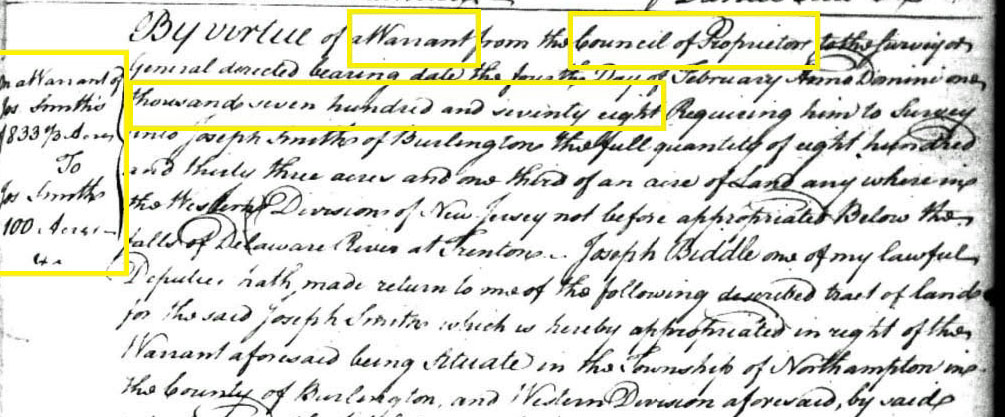 By virtue of a Warrant from the Council of Proprietors to the Surveyor
General directed bearing date the fourth Day of February Anno Domini one
thousand seven hundred and seventy eight Requiring him to Survey
unto Joseph Smith of Burlington the full quantity of eight hundred
and thirty three acres and one third of an acre of Land any where in
the Western Division of New Jersey not before appropriated Below the
falls of Delaware River at Trenton Joseph Biddle one of my lawful
Deputies hath made return to me of the following described tract of land
for the said Joseph Smith which is hereby appropriated in right of the
Warrant aforesaid being Situate in the Township of Northampton in
the County of Burlington, and Western Division aforesaid, by said
on a Warrant of
Jos Smiths
833 1/3 Acres
To
Jos Smith
100 Acres